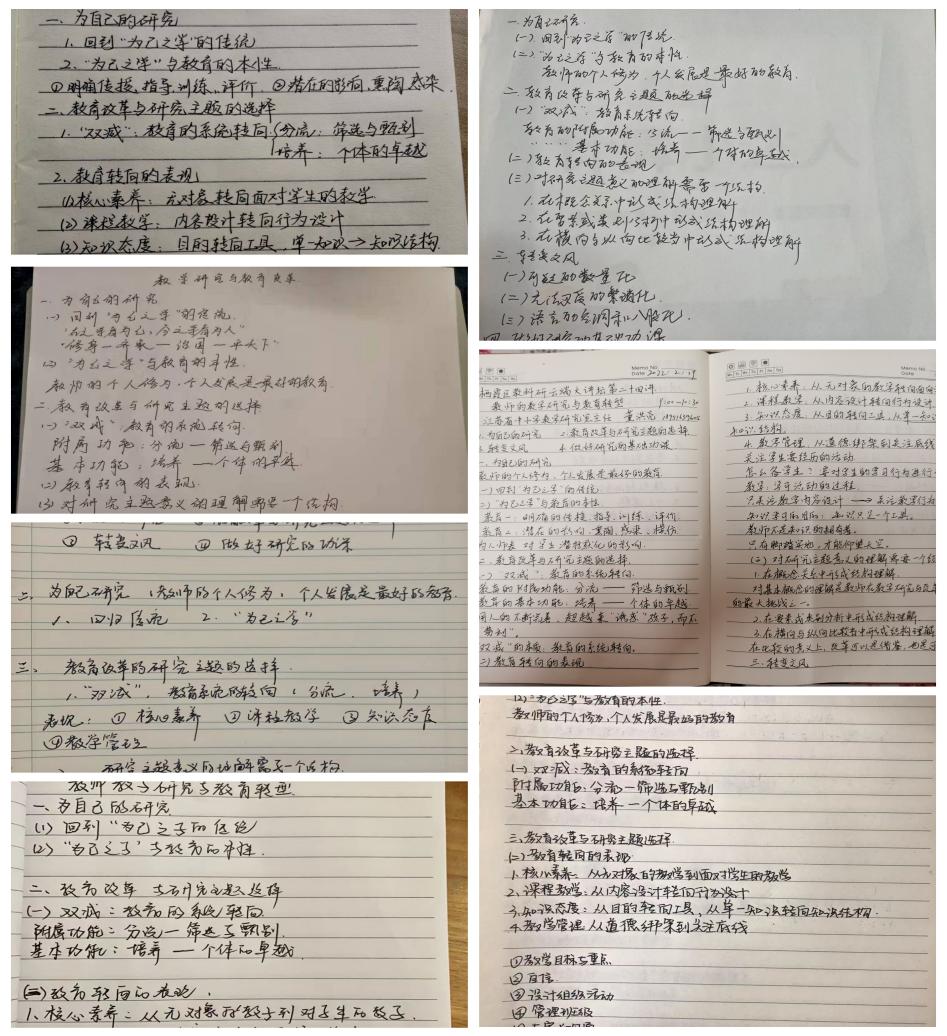 一、为自己的研究
1. 回到“为己之学”的传统
2. “为己之学”与教育的本性.
①明确传授、指导、训练、评价 ②潜在的影响、熏陶、感染
二、教育改革与研究主题的选择
1. “双减”: 教育的系统转向 分流: 筛选与甄别
培养: 个体的卓越
2. 教育转向的表现
(1)核心素养: 无对象转向面对学生的教学
(2)课程教学: 内容设计转向行为设计
(3)知识态度: 目的转向工具, 单一知识→知识结构.
一. 为自己的研究
(一) 回到“为己之学”的传统.
“古之学者为己, 今之学者为人”
“修身—齐家—治国—平天下”
(二) “为己之学”与教育的本性.
教师的个人修为, 个人发展是最好的教育.
二. 教育改革与研究主题的选择
(一) “双减”: 教育的系统转向.
附属功能: 分流——筛选与甄别
基本功能: 培养——个体的卓越.
(二) 教育转向的表现:
(三) 对研究主题意义的理解需要一个结构.
③ 转变文风 ④ 做好研究的功课
二. 为自己研究 (教师的个人修为, 个人发展是最好的教育.
1. 回归传统 2. “为己之学”
三. 教育改革的研究主题的选择
1. “双减”, 教育系统的转向 (分流、培养)
表现: ① 核心素养 ② 课程教学 ③ 知识态度
④教学管理
研究主题意义的理解需要一个结构.
教师教学研究与教育转型
一、为自己的研究
(1) 回到“为己之学的传统
(2) “为己之学”与教育的本性.
二、教育改革与研究主题选择
(一) 双减: 教育的系统转向.
附属功能: 分流—筛选与甄别.
基本功能: 培养——个体的卓越.
(二) 教育转向的表现.
1. 核心素养: 从无对象的教学到对学生的教学.
一. 为自己研究.
(一) 回到“为己之学”的传统.
(二) “为己之学”与教育的本性.
教师的个人修为, 个人发展是最好的教育.
二. 教育改革与研究主题的选择
(一) “双减”: 教育系统转向.
教育的附属功能: 分流——筛选与甄别
基本功能: 培养——个体的卓越.
(二) 教育转向的表现
(三) 对研究主题意义的理解需要一个结构.
1. 在概念关系中形成结构理解
2. 在要素或类别分析中形成结构理解
3. 在横向与纵向比较当中形成结构理解
三. 转变文风
(一) 可疑的数量化
(二) 无法卒读的繁琐化.
(三) 语言的空洞和八股化.
Memo No.
Date 2022.2.19
栖霞区教科研云端大讲坛第二十四讲
教师的教学研究与教育转型 9:00-10:30
江苏省中小学教学研究室主任 董洪亮
1. 为自己的研究 2. 教育改革与研究主题的选择
3. 转变文风 4. 做好研究的基础功课
一. 为自己的研究
教师的个人修为, 个人发展是最好的教育
(一) 回到“为己之学”的传统.
(二) “为己之学”与教育的本性
教育一: 明确的传授、指导、训练、评价.
教育二: 潜在的影响、熏陶、感染、模仿
为人师表 对学生潜移默化的影响.
二. 教育改革与研究主题的选择.
(一) “双减”: 教育的系统转向.
教育的附属功能: 分流——筛选与甄别
教育的基本功能: 培养——个体的卓越
“双减”的本质: 教育的系统转向.
(二) 教育转向的表现
Memo No.
Date
1. 核心素养: 从无对象的教学转向面向
2. 课程教学: 从内容设计转向行为设计
3. 知识态度: 从目的转向工具, 从单一知识
知识结构.
4. 教学管理 从道德绑架到关注底线
关注学生要经历的活动
怎么备学生? 要对学生的学习行为进行
教学: 学习活动的过程.
只关注教学内容设计 → 关注教学行为
知识学习的目的: 知识只是一个工具.
教师不是知识的拥有者.
只有脚踏实地, 才能仰望天空.
(三) 对研究主题意义的理解需要一个结
1. 在概念关系中形成结构理解.
对基本概念的理解是教师在教学研究与改革
的最大挑战之一.
2. 在要素或类别分析中形成结构理解
3. 在横向与纵向比较当中形成结构理解
在比较的意义上, 改革可以是借鉴, 也是
三. 转变文风
(2) “为己之学”与教育的本性.
教师的个人修为, 个人发展是最好的教育
二、教育改革与研究主题的选择
(一) 双减: 教育的系统转向
附属功能: 分流—筛选与甄别
基本功能: 培养—个体的卓越
三、教育改革与研究主题选择.
(二) 教育转向的表现
1. 核心素养: 从无对象的教学到面对学生的教学
2. 课程教学: 从内容设计转向行为设计
3. 知识态度: 从目的转向工具, 从单一知识转向知识结构.
4. 教学管理 从道德绑架到关注底线
①教学目标与重点
②自信
③设计组织活动
④管理班级